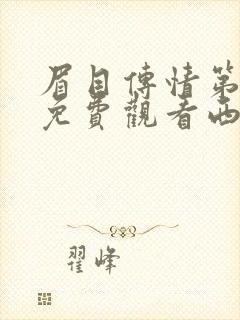 眉目傳情第
免費觀看西
翟峰